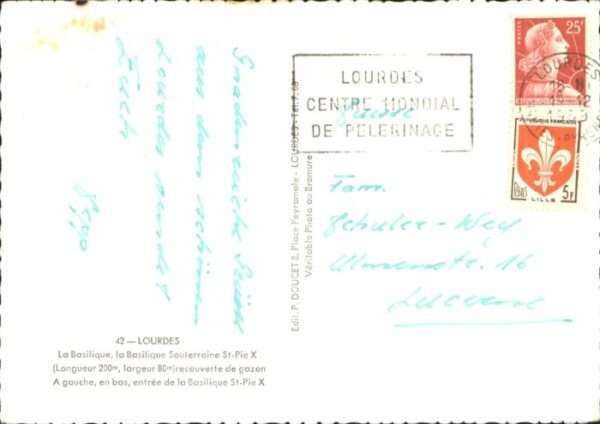 Gnadenreiche Grüße
aus dem schönen
Lourdes sendet
Euch
42 — LOURDES
La Basilique, la Basilique Souterraine St-Pie X
(Longueur 200m, largeur 80m) recouverte de gazon
A gauche, en bas, entrée de la Basilique St-Pie X
Edit. P. DOUCET 2, Place Peyramale - LOURDES - Tél. 7.68
Véritable Photo au Bromure
LOURDES
CENTRE MONDIAL
DE PELERINAGE
LOURDES
25F
REPUBLIQUE FRANÇAISE
5F
LILLE
Fam.
Schuler-Wey
16
Lucerne